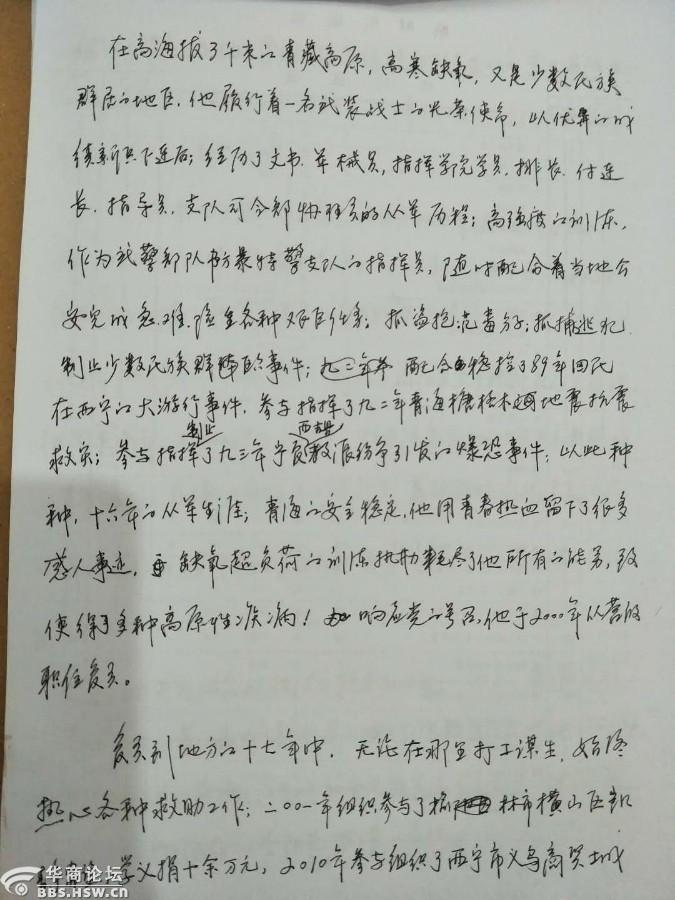 在高海拔了千米的青藏高原，高寒缺氧，又是少数民族
群居的地区，他履行着一名武装战士的光荣使命，以优异的成
绩新训下连后；经历了文书、军械员，指挥学院学员，排长、付连
长、指导员，支队司令部协理员的从军历程；高强度的训练，
作为武警部队防暴特警支队的指挥员，随时配合着当地公
安完成急、难、险重各种艰巨任务；抓盗抢犯毒分子；抓捕逃犯
制止少数民族群事件；配合稳控了89年回民
在西宁的大游行事件，参与指挥了九二年青海塘格木地震抗震
救灾；参与指挥制止了九三年宁西胡教派纷争引发的爆恐事件；以此种
种，十六年的从军生涯；青海的安全稳定，他用青春热血留下了很多
感人事迹，缺氧超负荷的训练执勤耗尽了他所有的能力，致
使得了多种高原性疾病！响应党的号召，他于2000年从营级
职位复员。
复员到地方的十七年中，无论在那里打工谋生，始终
热心各种救助工作；二00一年组织参与了榆林市横山区
学义捐十余万元，2010年参与组织了西宁市义乌商贸城
华商论坛
BBS.HSW.CN